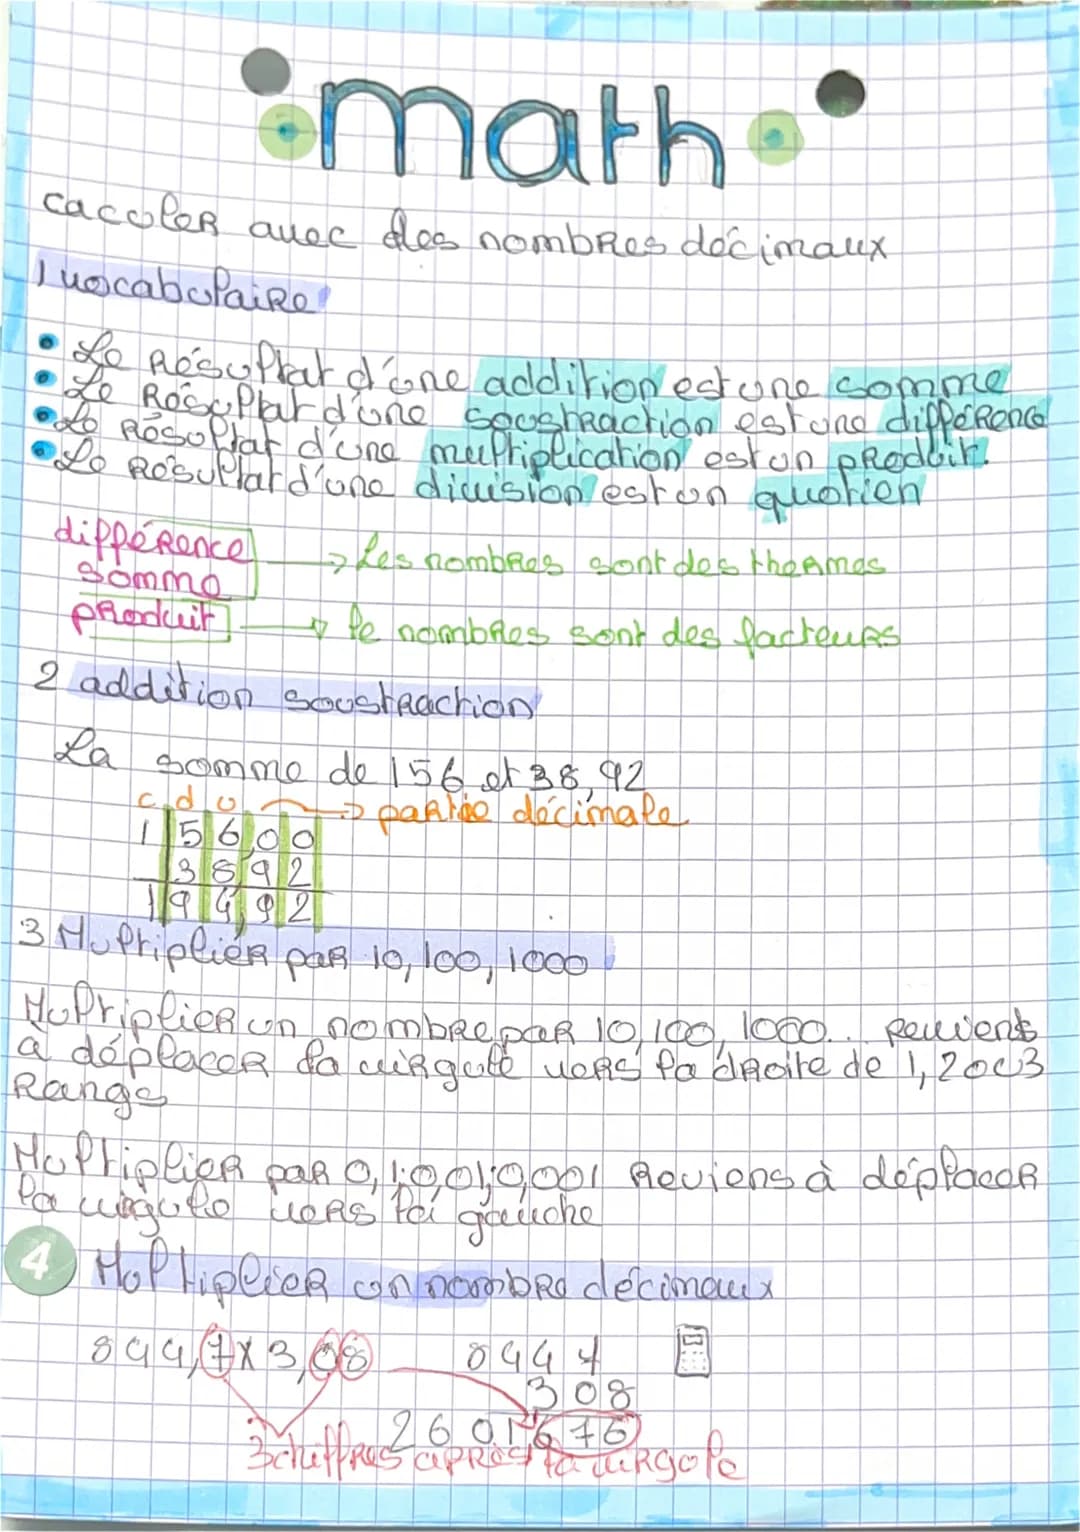 math
cacoler avec des nombres décimaux
1 vocabulaire
Le Résultat d'une addition est une somme
Le Résultat d'une soustraction est une différence
Le Résultat d'une multiplication est un produit.
Le Résultat d'une division est un quotien
différence
somme
→ Les nombres sont des thermes
produit → le nombres sont des facteurs
2 addition soustraction
La somme de 156 et 38,92
c d u → partie décimale
156,00
38,92
194,92
3 Multiplier par 10, 100, 1000
Multiplier un nombre par 10, 100, 1000... revient
à déplacer la virgule vers la droite de 1, 2 ou 3
Rangs
Multiplier par 0,1;0,01;0,001 Reviens à déplacer
la virgule vers la gauche
4 Multiplier un nombre décimaux
844,7 x 3,08 8447
308
2601,676
3 chiffres après la virgule